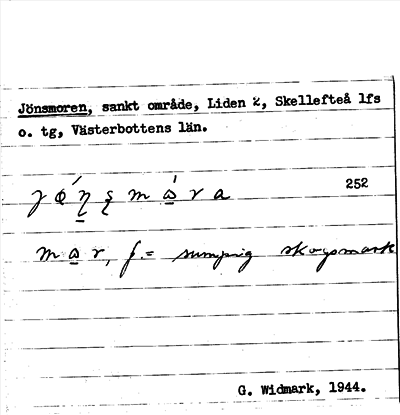 Jönsmoren, sankt område, Liden 2, Skellefteå lfs
o. tg, Västerbottens län.
252
mɷr, f.= sumpig skogsmark
G. Widmark, 1944.